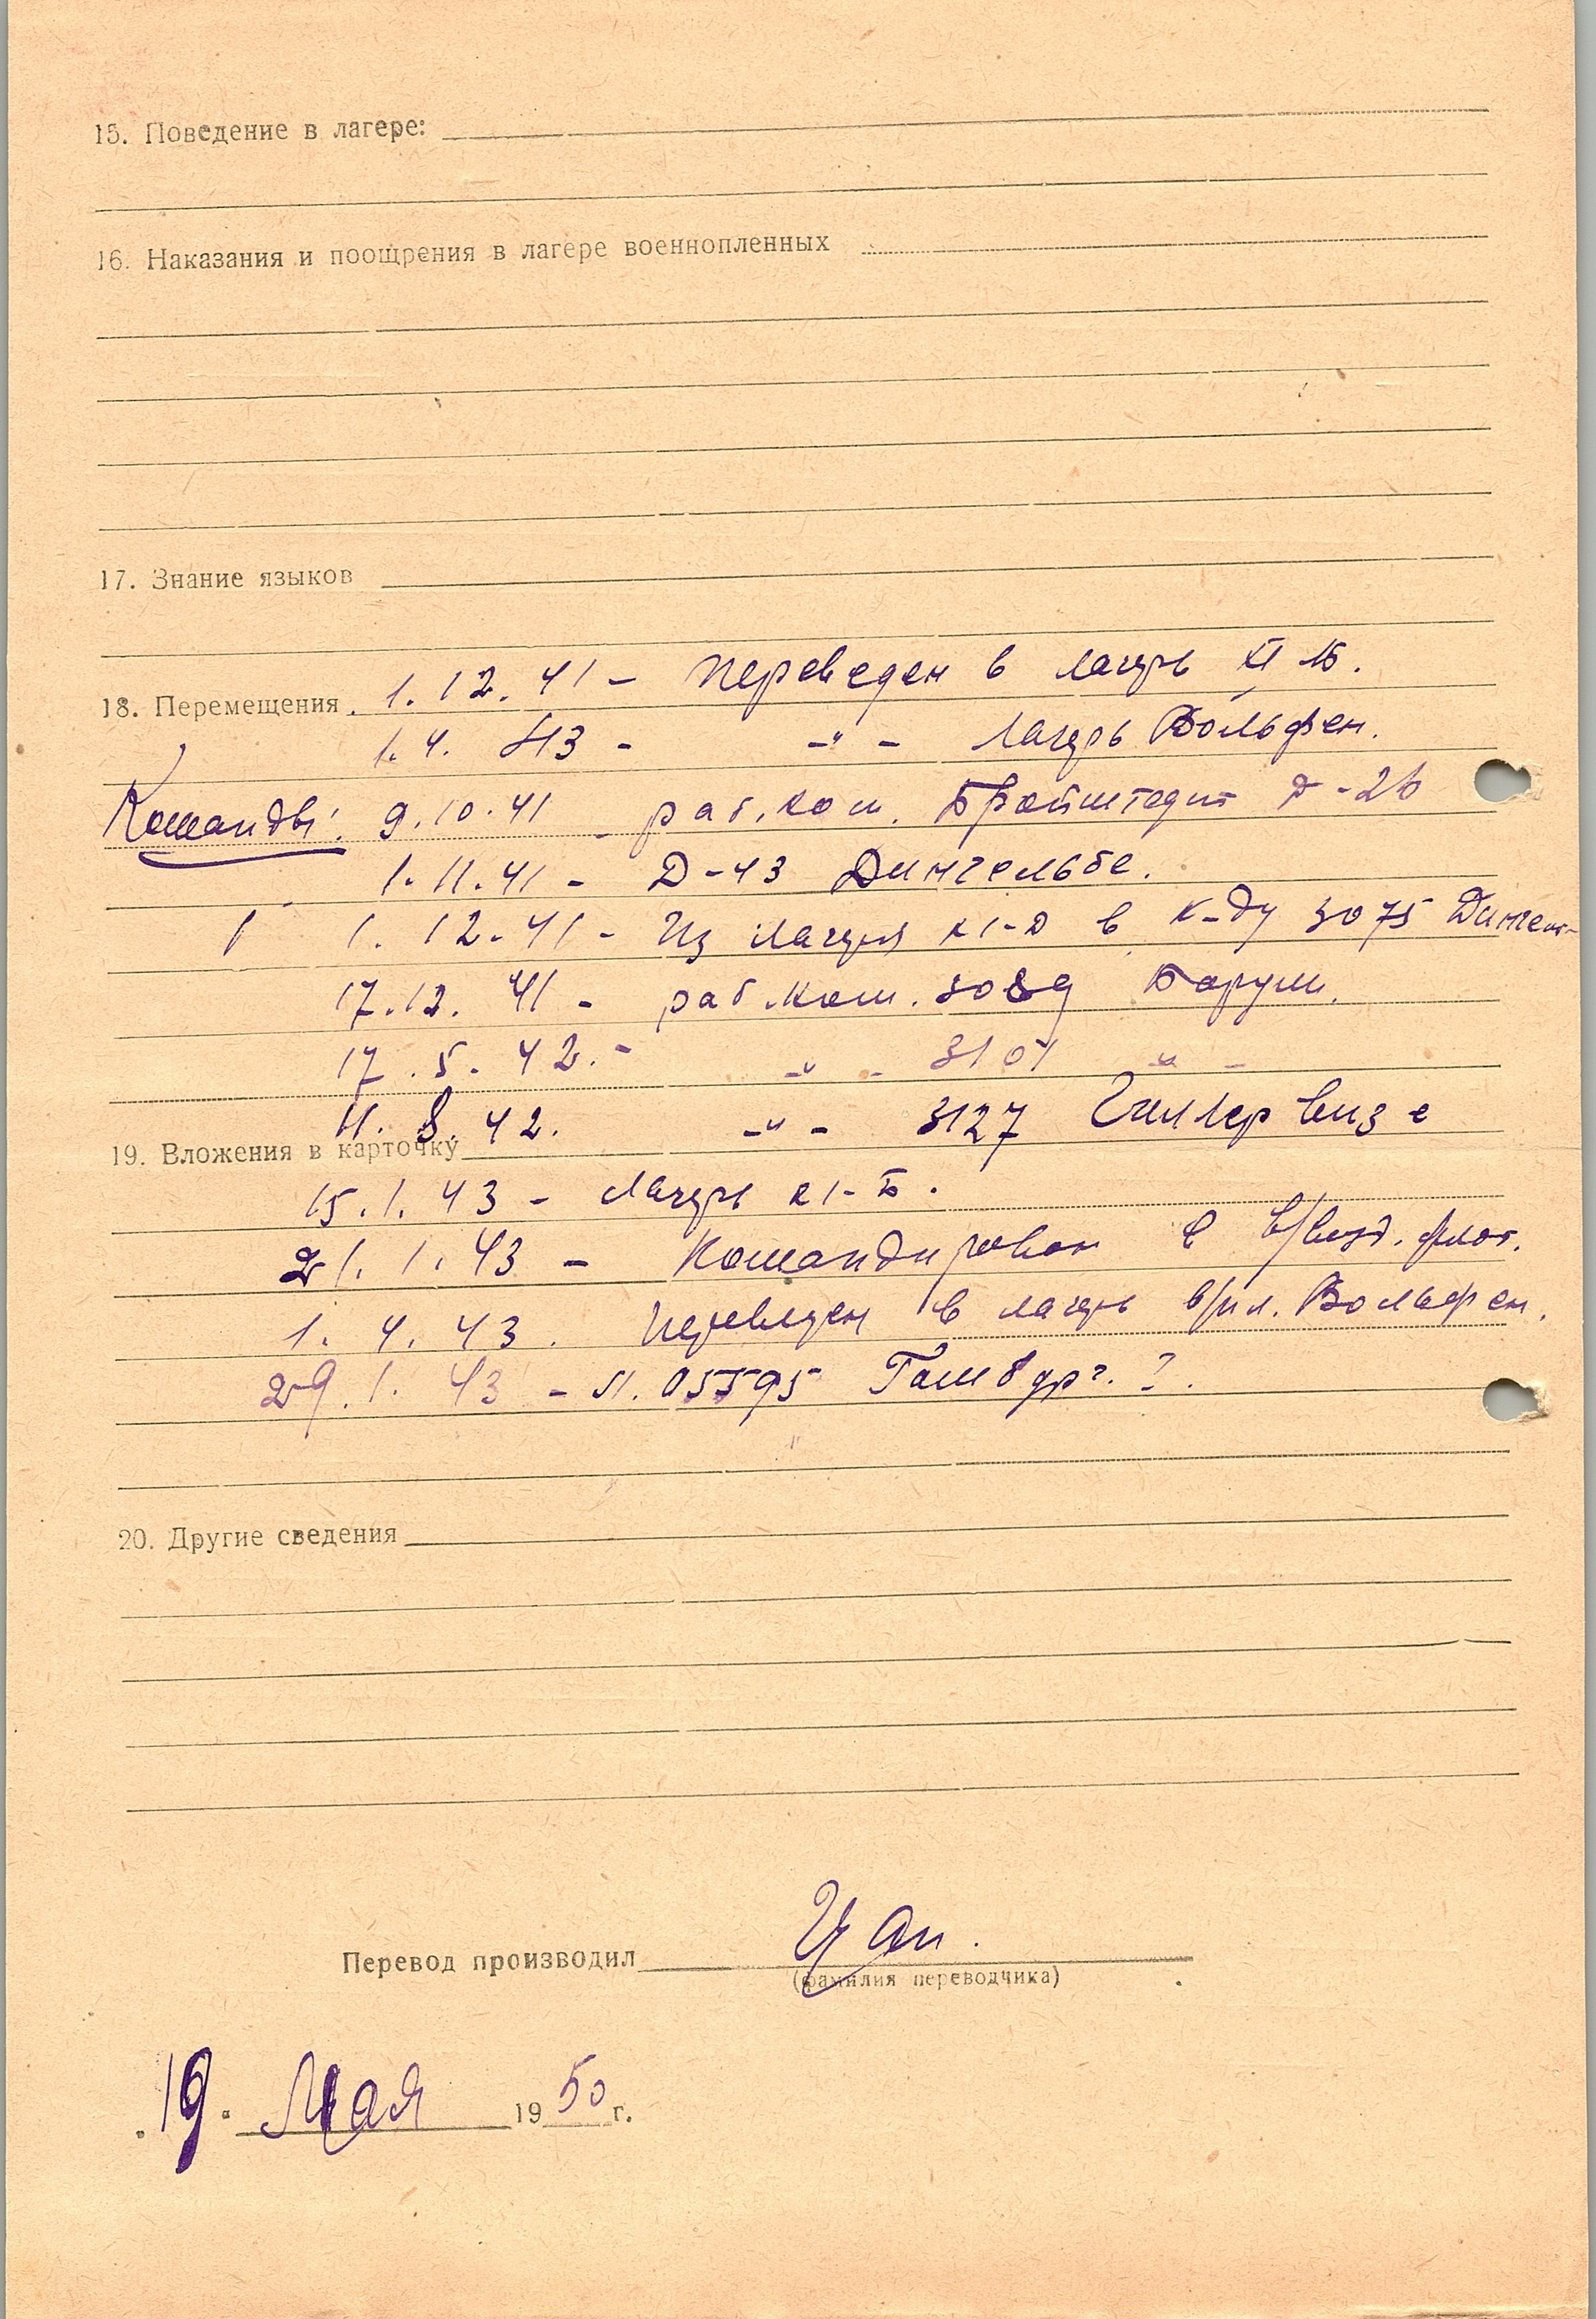 15. Поведение в лагере:
16. Наказания и поощрения в лагере военнопленных
17. Знание языков
18. Перемещения. 1.12.41 - Переведен в лагерь XI Б.
1.4.43 - -"- лагерь Вольфен.
Команды: 9.10.41 - раб. ком. Бройтштедт Д-26
1.11.41 - Д-43 Дингельбе.
1.12.41 - Из лагеря XI-Д в к-ду 3075 Дингел-
17.12.41 - раб. ком. 3089 Барум.
17.5.42. - -"- 3101 -"-
11.8.42. -"- 3127 Гиллервизе
19. Вложения в карточку
15.1.43 - Лагерь XI-Б.
21.1.43 - Командирован в в/возд. флот.
1.4.43. Переведен в лагерь в/пл. Вольфен.
29.1.43 - Л. 05595 Гамбург. ?.
20. Другие сведения
Перевод производил Цап.
(фамилия переводчика)
19. Мая 1950 г.